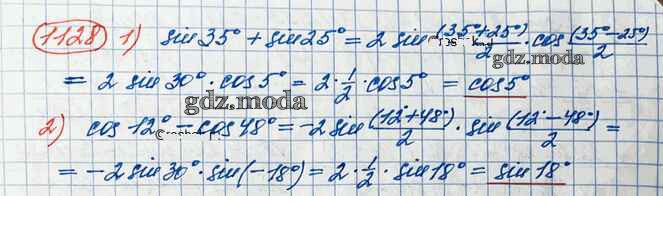 1128 1) sin 35° + sin 25° = 2 sin (35°+25°)/2 · cos (35°-25°)/2
= 2 sin 30° · cos 5° = 2 · 1/2 · cos 5° = cos 5°
gdz.moda
gdz.moda
2) cos 12° - cos 48° = -2 sin (12°+48°)/2 · sin (12°-48°)/2 =
= -2 sin 30° · sin(-18°) = 2 · 1/2 · sin 18° = sin 18°